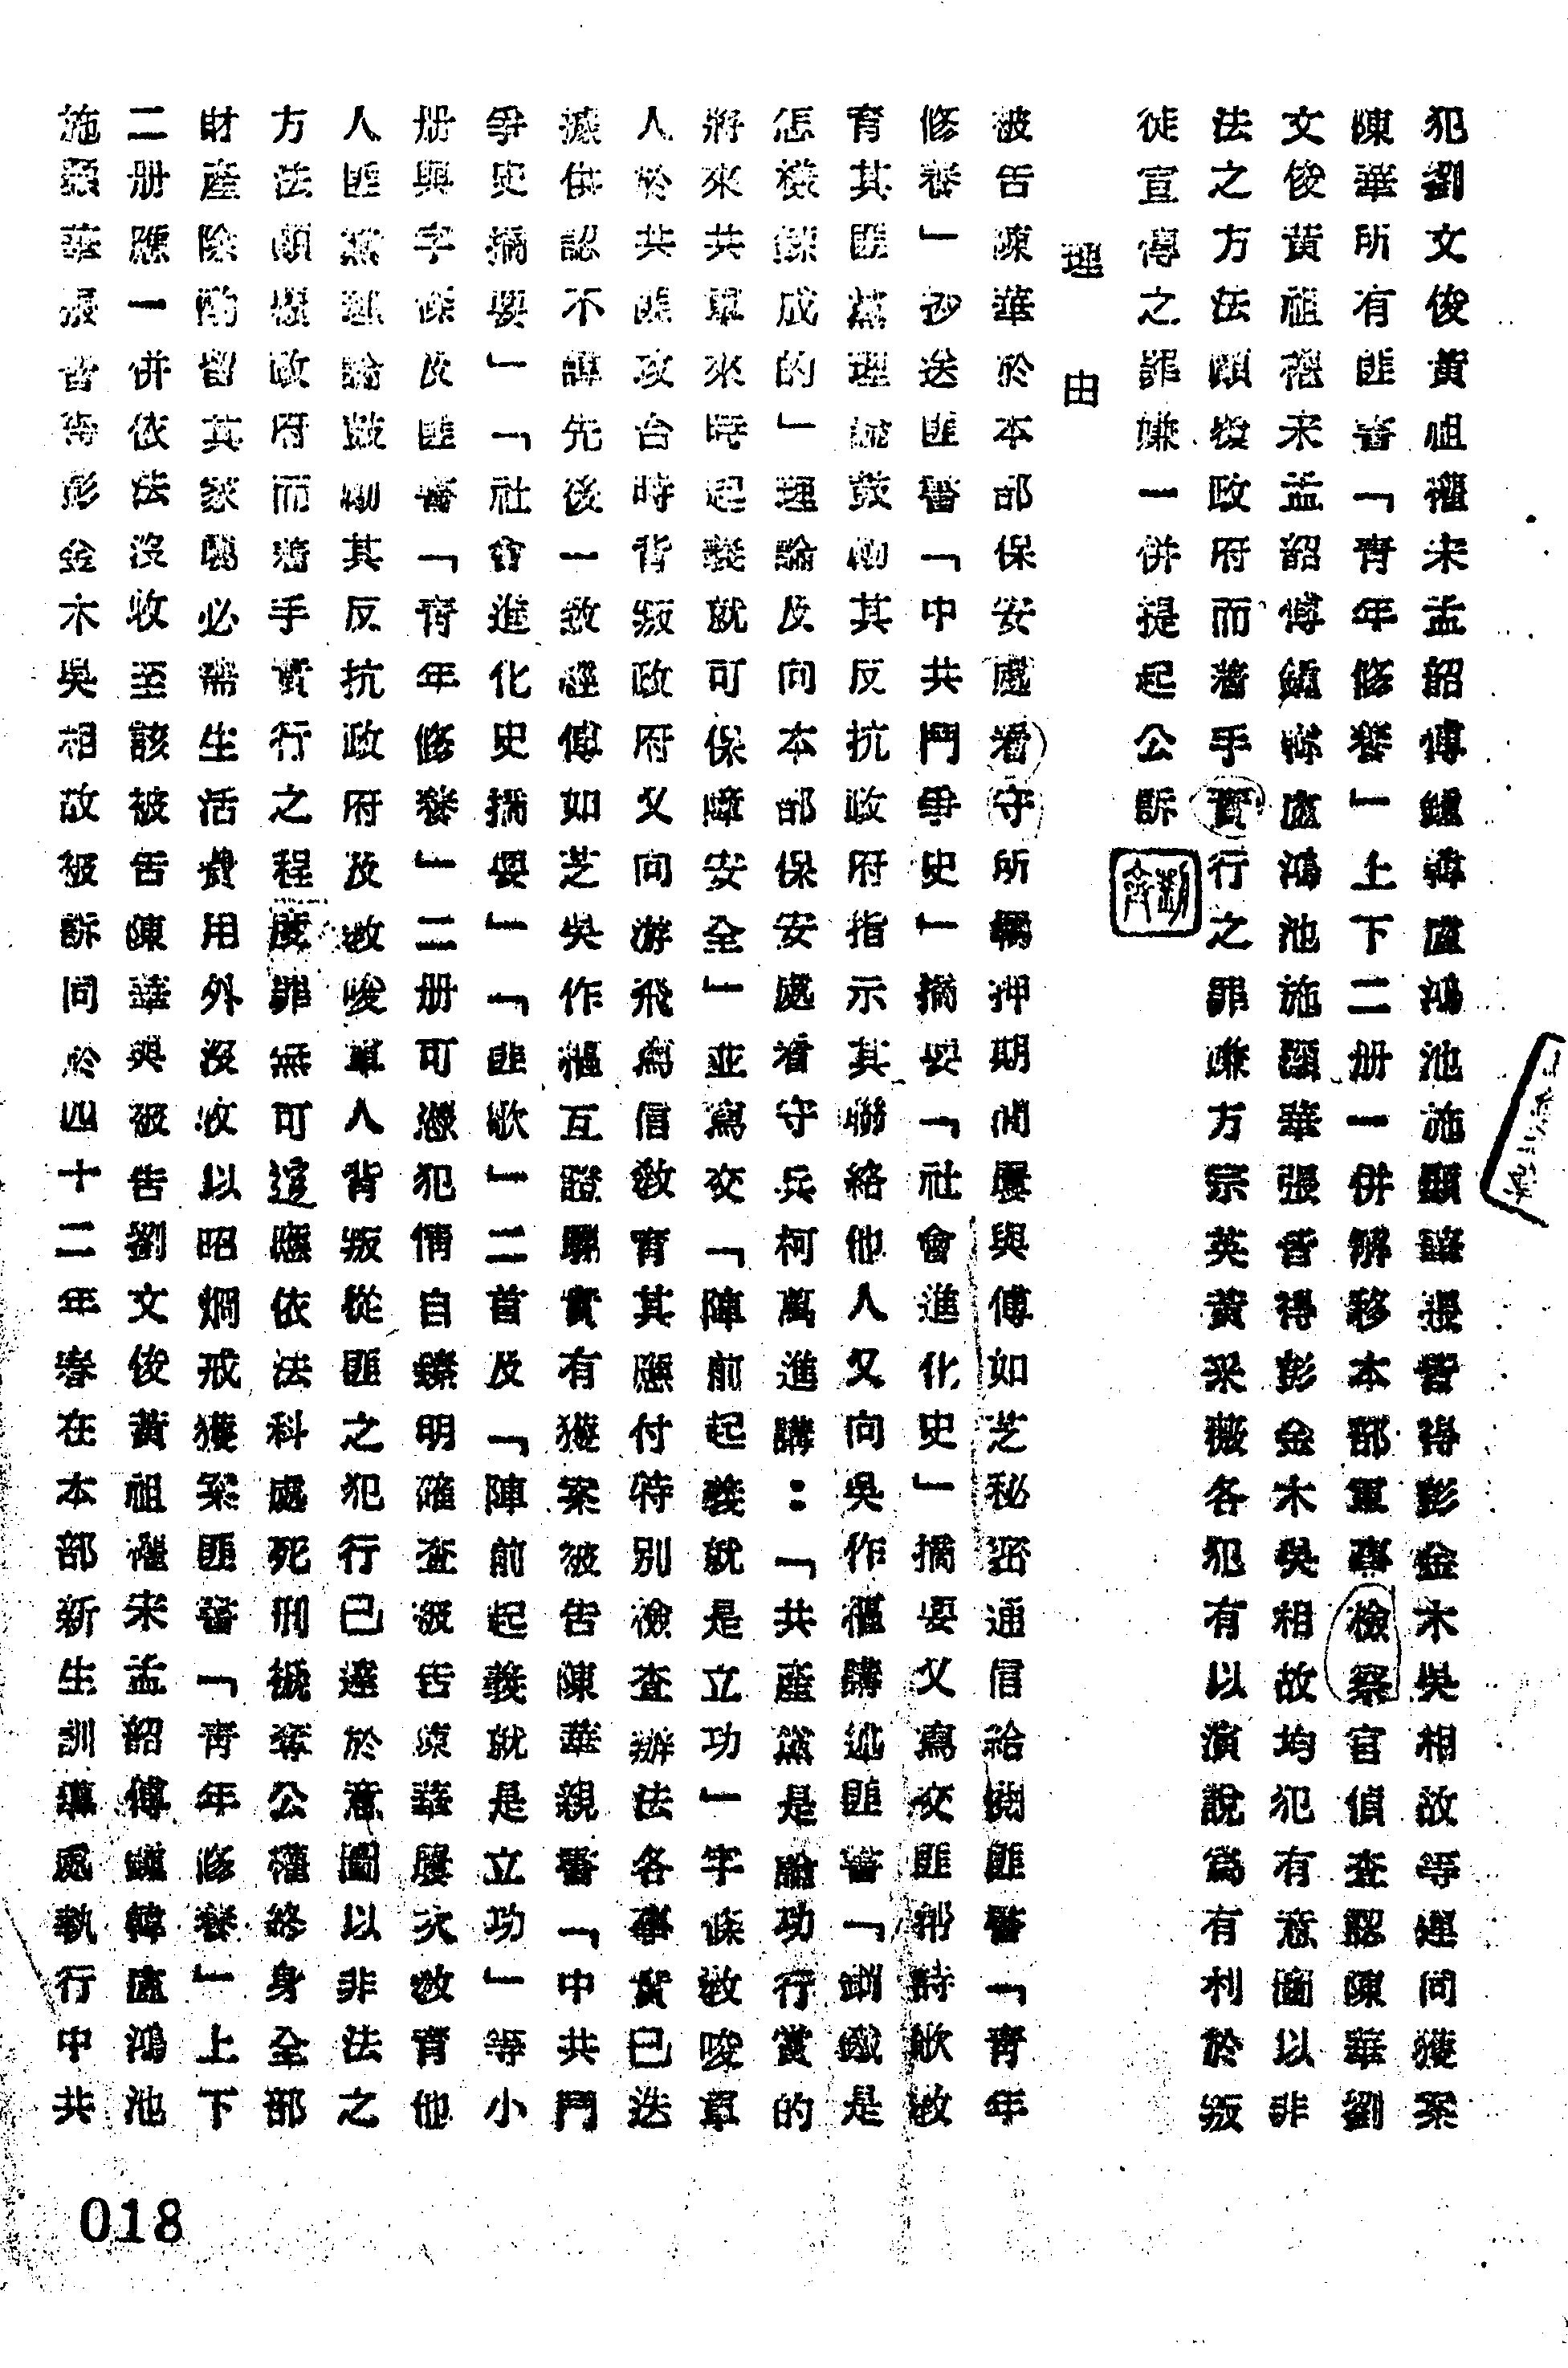 犯劉文俊黃祖權宋孟韶傅鎮韡盧鴻池施顯華張晋得彭金木吳相故等連同獲案
陳華所有匪書「青年修養」上下二册一併解移本部軍事檢察官偵查認陳華劉
文俊黃祖權宋孟韶傅鎮韡盧鴻池施顯華張晋得彭金木吳相故均犯有意圖以非
法之方法顛覆政府而着手實行之罪嫌方宗英黃采薇各犯有以演說爲有利於叛
徒宣傳之罪嫌一併提起公訴
理由
被告陳華於本部保安處看守所羈押期間屢與傅如芝秘密通信給閱匪書「青年
修養」抄送匪書「中共鬥爭史」摘要「社會進化史」摘要又寫交匪幫詩歌教
育其匪黨理論鼓勵其反抗政府指示其聯絡他人又向吳作樞講述匪書「鋼鐵是
怎樣鍊成的」理論及向本部保安處看守兵柯萬進講：「共產黨是論功行賞的
將來共軍來時起義就可保障安全」並寫交「陣前起義就是立功」字條教唆軍
人於共匪攻台時背叛政府又向游飛爲信教育其應付特別檢查辦法各事實已迭
據供認不諱先後一致經傅如芝吳作樞互證屬實有獲案被告陳華親書「中共鬥
爭史摘要」「社會進化史摘要」「匪歌」二首及「陣前起義就是立功」等小
册與字條及匪書「青年修養」二册可憑犯情自臻明確查被告陳華屢次教育他
人匪黨理論鼓勵其反抗政府及教唆軍人背叛從匪之犯行已達於意圖以非法之
方法顛覆政府而着手實行之程度罪無可逭應依法科處死刑褫奪公權終身全部
財產除酌留其家屬必需生活費用外沒收以昭烱戒獲案匪書「青年修養」上下
二册應一併依法沒收至該被告陳華與被告劉文俊黃祖權宋孟韶傅鎮韡盧鴻池
施顯華張晋得彭金木吳相故被訴同於四十二年春在本部新生訓導處執行中共
018